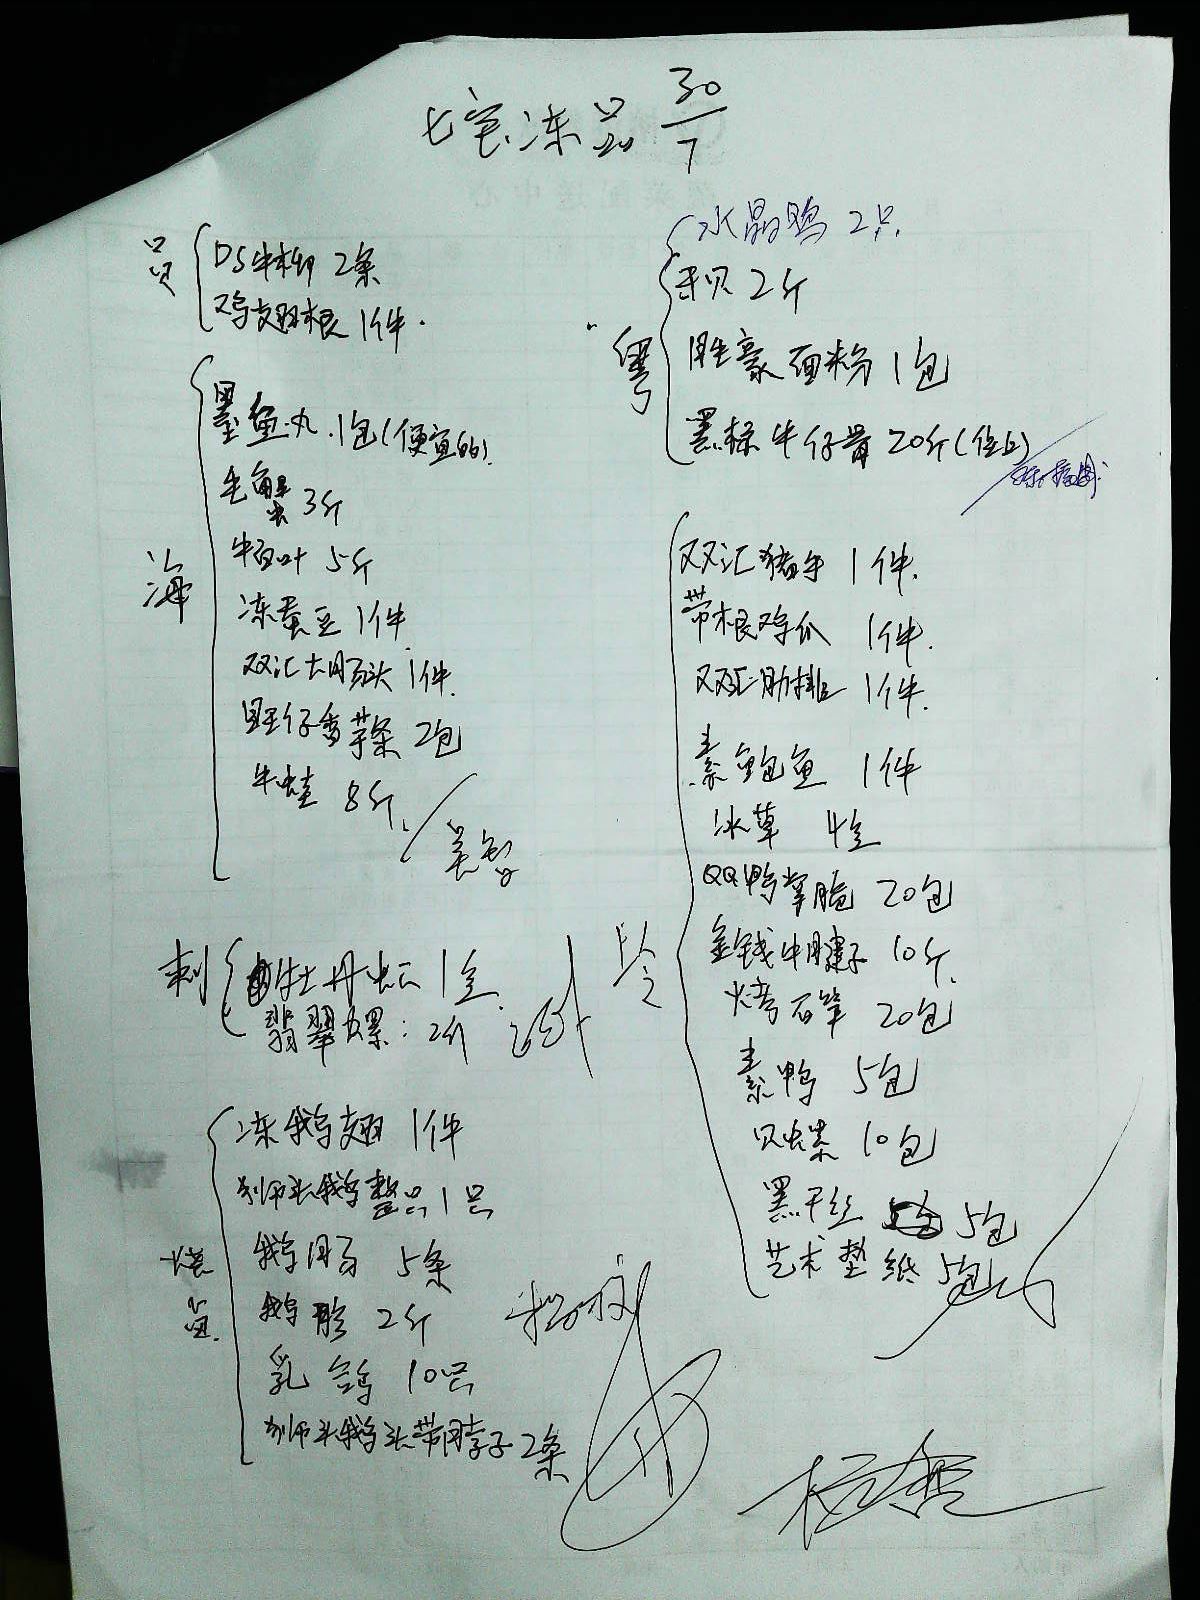 七宝冻品 30/7
员
DS牛柳 2条
鸡翅根 1件.
海
墨鱼丸 1包(便宜的)
毛蟹 3斤
牛百叶 5斤
冻蚕豆 1件
双汇大肠头 1件.
旺仔香芋条 2包
牛蛙 8斤.
刺
牡丹虾 1盒
翡翠螺: 2斤
烧
卤
冻鹅翅 1件
狮头鹅整只 1只
鹅肠 5条
鹅胗 2斤
乳鸽 10只
狮头鹅头带脖子 2条
粤
水晶鸭 2只.
干贝 2斤
胜豪面粉 1包
黑标牛仔骨 20斤
冷
双汇猪手 1件.
带根鸡爪 1件.
双汇肋排 1件.
素鲍鱼 1件
冰草 4盒
QQ鸭掌脆 20包
金钱牛腱子 10斤.
烤石笋 20包
素鸭 5包
贝 10包
黑干丝 5包
艺术垫纸 5包